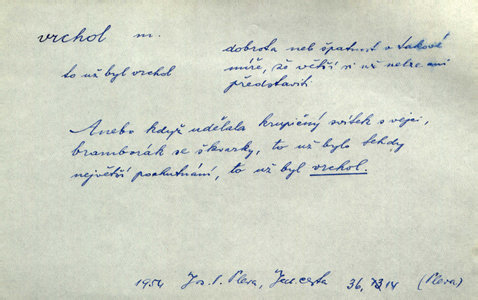 vrchol m.
dobrota neb špatnost v takové
míře, že větší si už nelze ani
představit
to už byl vrchol
Anebo když udělala krupičný svítek s vejci,
bramborák se škvarky, to už bylo tehdy
největší pochutnání, to už byl vrchol.
1954 Jos. S. Pleva, Jed. cesta 36, 1314 (Pleva)